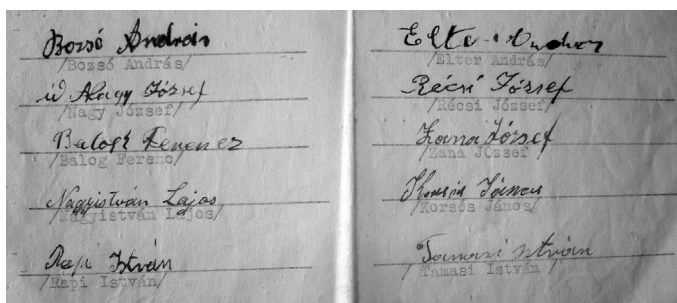 Bozsó András
/Bozsó András/
id Nagy József
/Nagy József/
Balogh Ferencz
/Balog Ferenc/
Nagyistván Lajos
/Nagyistván Lajos/
Rapi István
/Rapi István/
Elter András
/Elter András/
Récsi József
/Récsi József/
Zana József
/Zana József/
Korsós János
/Korsós János/
Tamasi István
/Tamasi István/